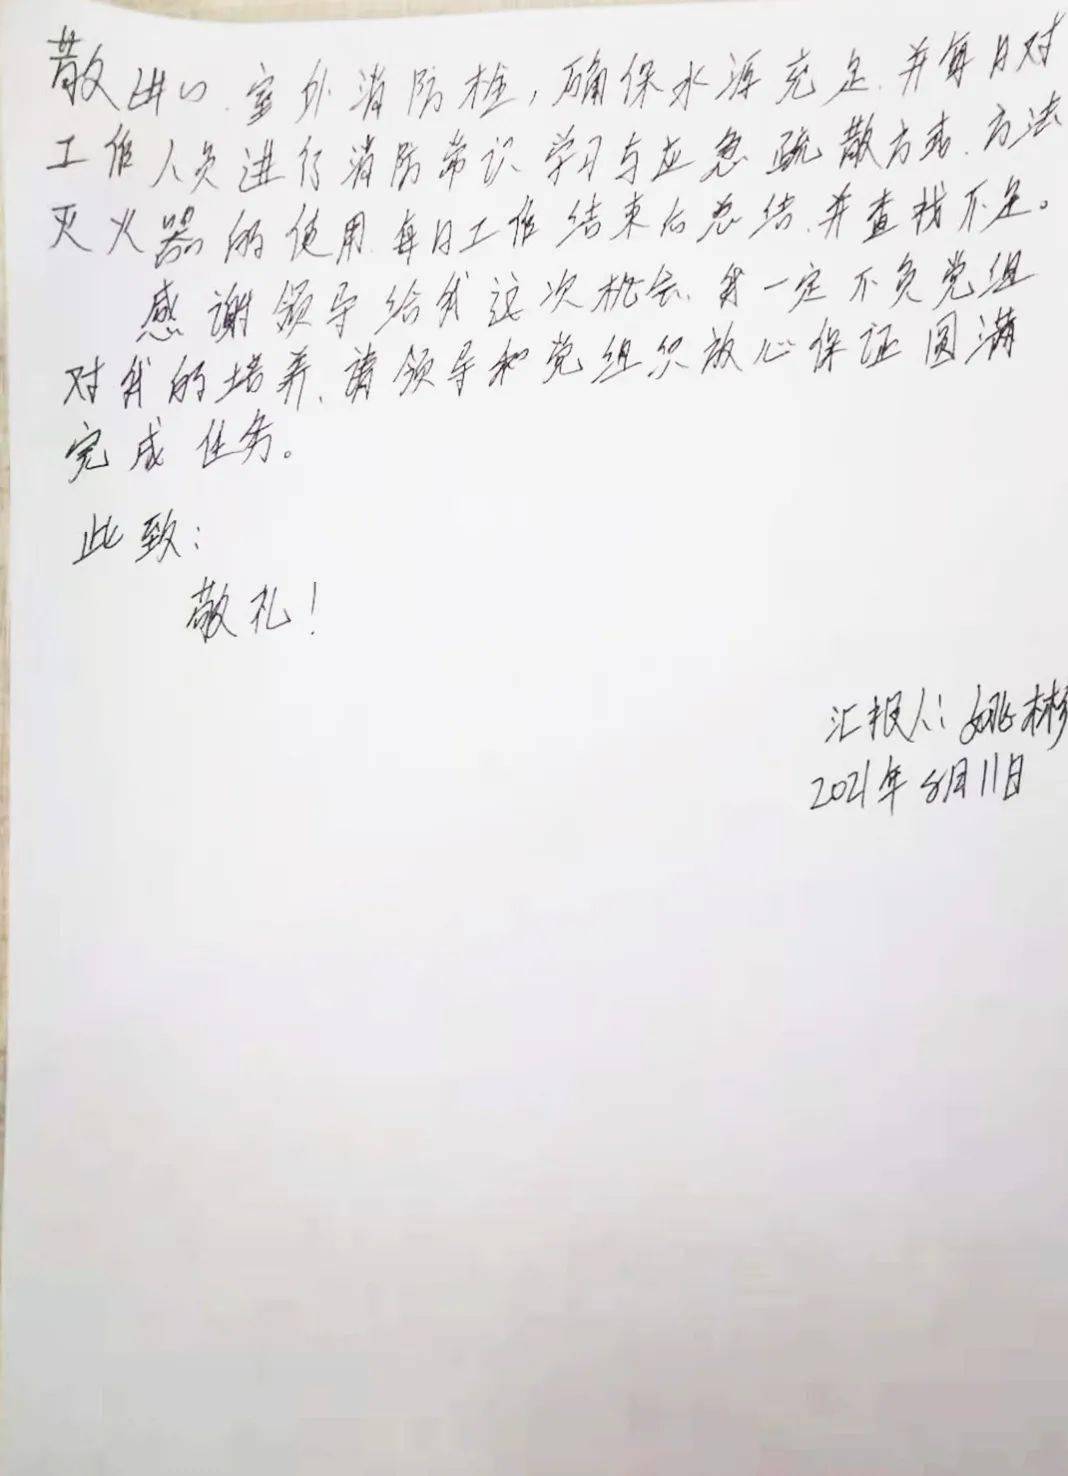 散进口、室外消防栓,确保水源充足、并每日对
工作人员进行消防常识学习与应急疏散方式、方法
灭火器的使用、每日工作结束后总结、并查找不足。
感谢领导给我这次机会、我一定不负党组
对我的培养、请领导和党组织放心保证圆满
完成任务。
此致:
敬礼!
汇报人:姚彬
2021年8月11日